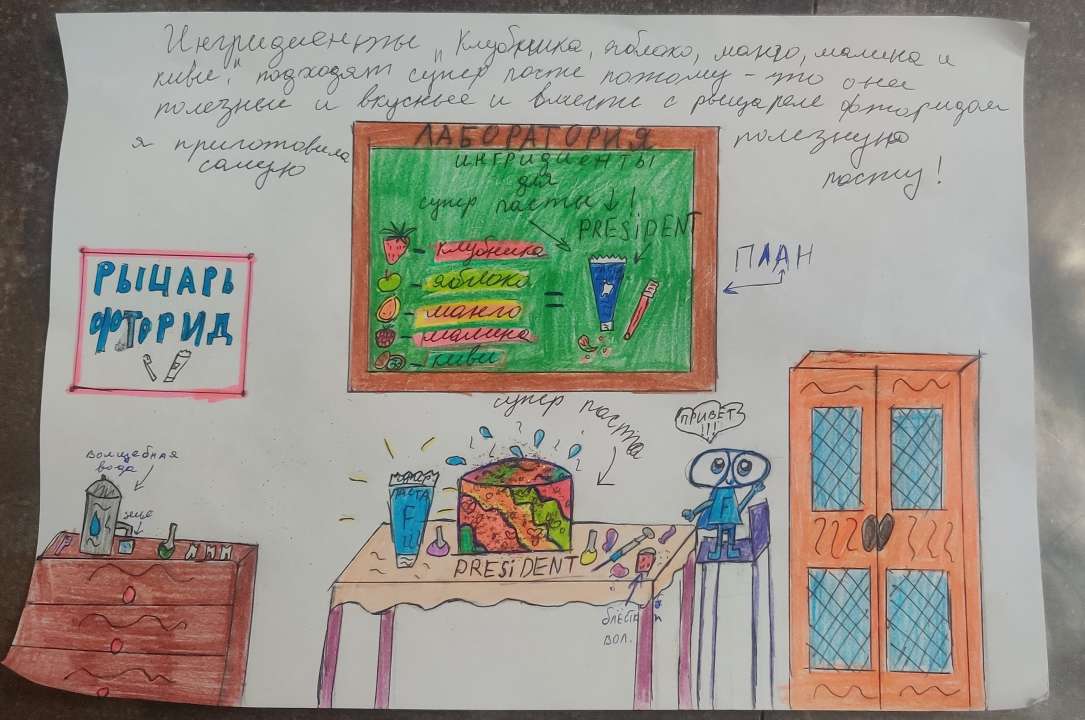 Ингридиенты „Клубника, яблоко, манго, малина и
киви," подходят супер пасте потому-что они
полезные и вкусные и вместе с рыцарем фторидом
я приготовила
самую
полезную
пасту!
ЛАБОРАТОРИЯ
ИНГРИДИЕНТЫ
для
супер пасты !
PRESIDENT
- клубника
- яблоко
- манго
- малина
- киви
=
ПЛАН
РЫЦАРЬ
ФТОРИД
супер паста
ПРИВЕТ
!!!
волшебная
вода
ПАСТА
F
F
PRESIDENT
блёстки
вол.